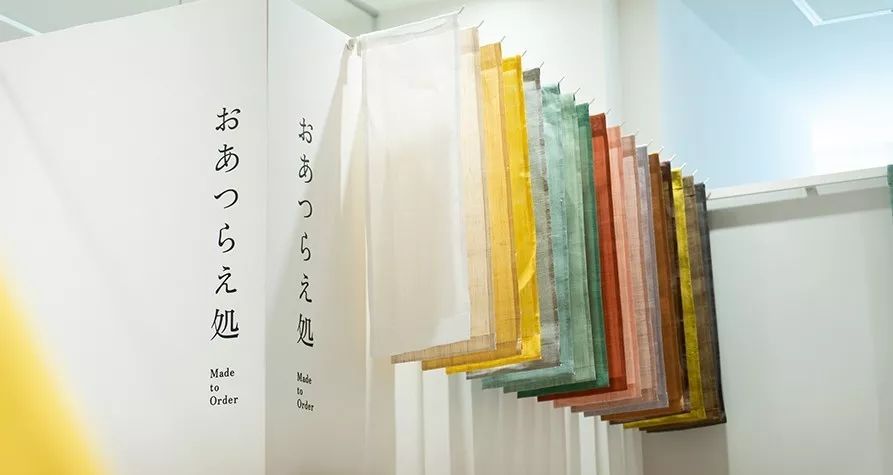 おあつらえ処
Made
to
Order
おあつらえ処
Made
to
Order